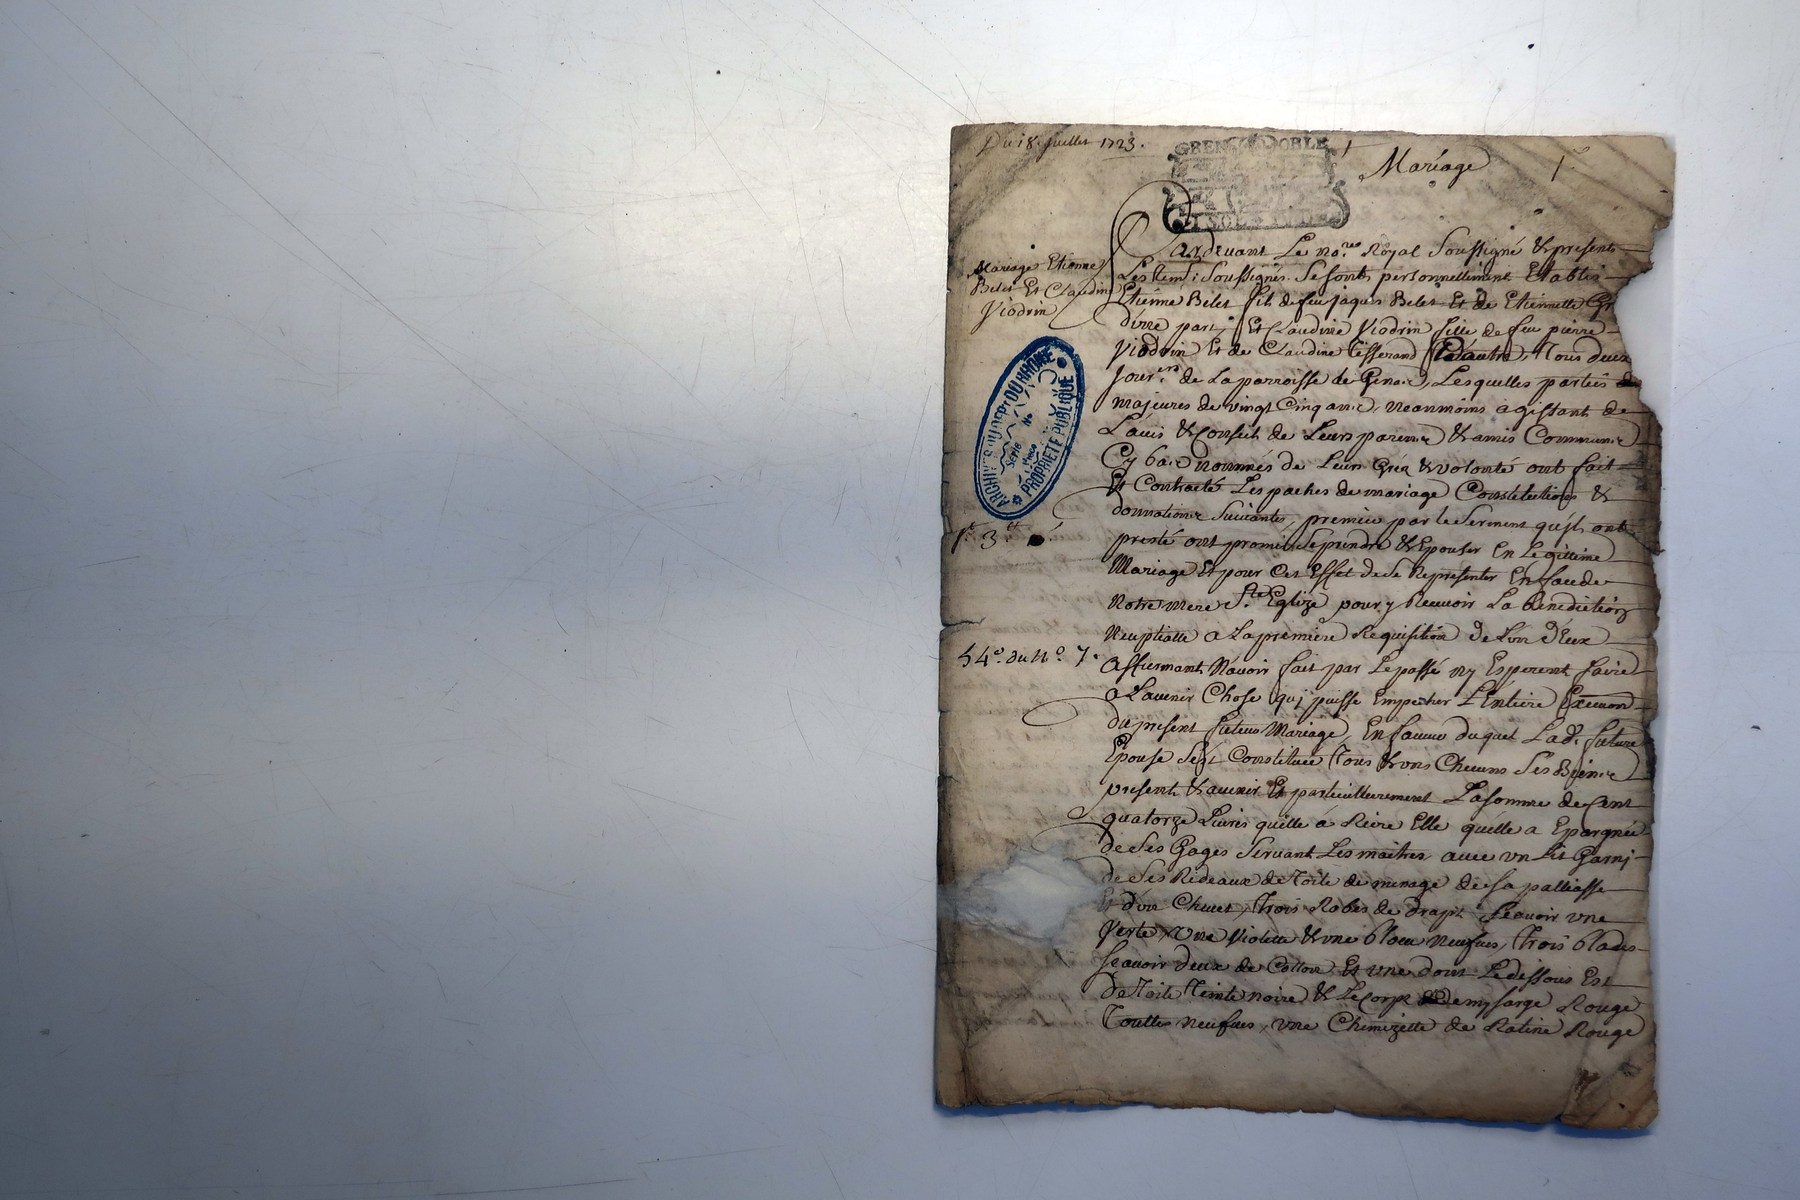 Du 18. Juillet 1723.
GRENOBLE
Mariage
1
Mariage Etienne
Belet Et Claudine
Viodrin
Pardevant Le no.re Royal Soussigné & present
Les tem: Soussignés Se sont personnellement Establis
Etienne Belet fil de feu jaques Belet Et de Etiennette
d'une part, Et Claudine Viodrin fille de feu pierre
Viodrin Et de Claudine Tisserand D'autre, Tous deux
Jour.rs de La parroisse de Genas, Lesquelles parties
majeures de vingt Cinq ans, neanmoins agissant de
Lauis & Conseil de Leurs parens & amis Communs
Cy bas nommés de Leur Gréz & volonté ont fait
Et Contracté Les paches de mariage Constitutions &
donnations Suivantes, premier par le Serment qu'jls ont
presté ont promis Se prendre & Epouser En Legittime
Mariage Et pour Cet Effet de Se Representer En face de
Notre mere S.te Eglize pour y Recevoir La Benediction
Neuptialle a La premiere Requisition de Lun D'Eux
Affirmant N'auoir fait par Le passé ny Esperent faire
a L'auenir Chose quj puisse Empecher L'Entiere Execuon
du present futeur Mariage, En faueur duquel Lad. future
Epouse S'est Constituée Tous & uns Chacuns Ses Biens
present & auenir Et particullierement La somme de Cent
quatorze Liures quille a Riere Elle quelle a Epargnée
de Ses Gages Seruant Les maitres auec un Lit Garnj
de Ses Rideaux de Toile de menage de Sa palliasse
Et d'un Chuet, Trois Robes de drapt Scauoir une
Verte, Une Violette & une bloue neufues, Trois blodes
Scauoir deux de Cotton Et une dont Le dessous Est
de Toile Teinte noire & Le Corps de demy sarge Rouge
Touttes neufues, une Chemizette de Ratine Rouge
ARCHIVES DU DEPT DU RHÔNE
SERIE
No
PROPRIÉTÉ PUBLIQUE
3
54.e du N.o 7.